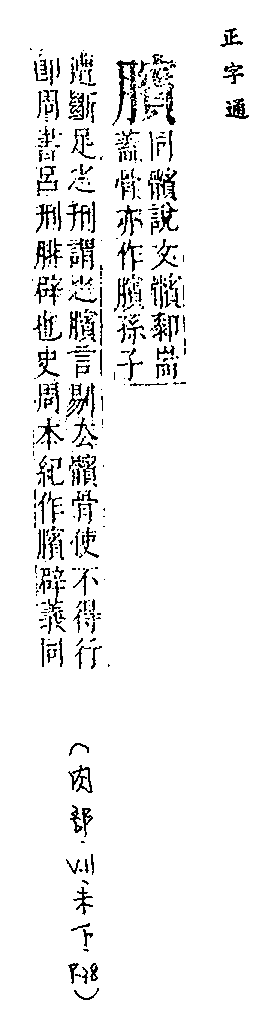 正字通
臏
同髕說文髕厀耑
蓋骨亦作臏孫子
遭斷足之刑謂之臏言剔厺髕骨使不得行
卽周書呂刑腓辟也史周本紀作臏辟義同
(肉部·V.11·未下·P.38)